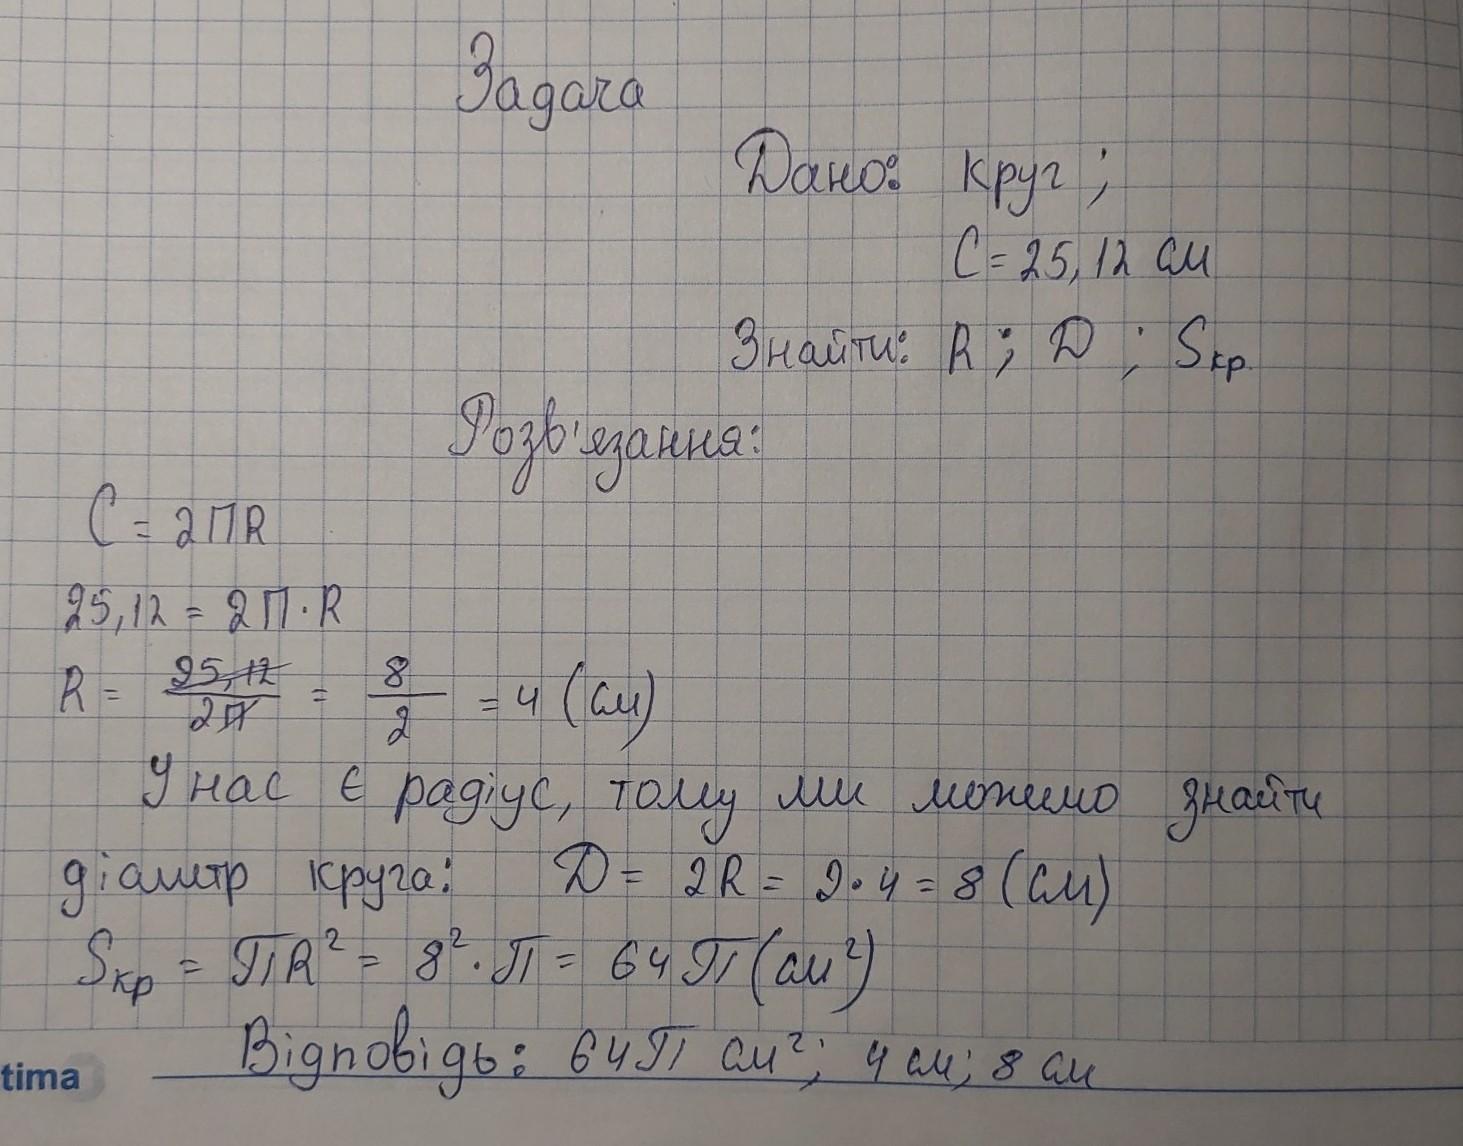 Задача
Дано: круг;
C = 25,12 см
Знайти: R; D; Sкр.
Розв'язання:
C = 2ПR
25,12 = 2П · R
R = 25,12/2П = 8/2 = 4 (см)
У нас є радіус, тому ми можемо знайти
діаметр круга: D = 2R = 2·4 = 8 (см)
Sкр = ПR² = 8² · П = 64П (см²)
Відповідь: 64П см²; 4 см; 8 см
tima